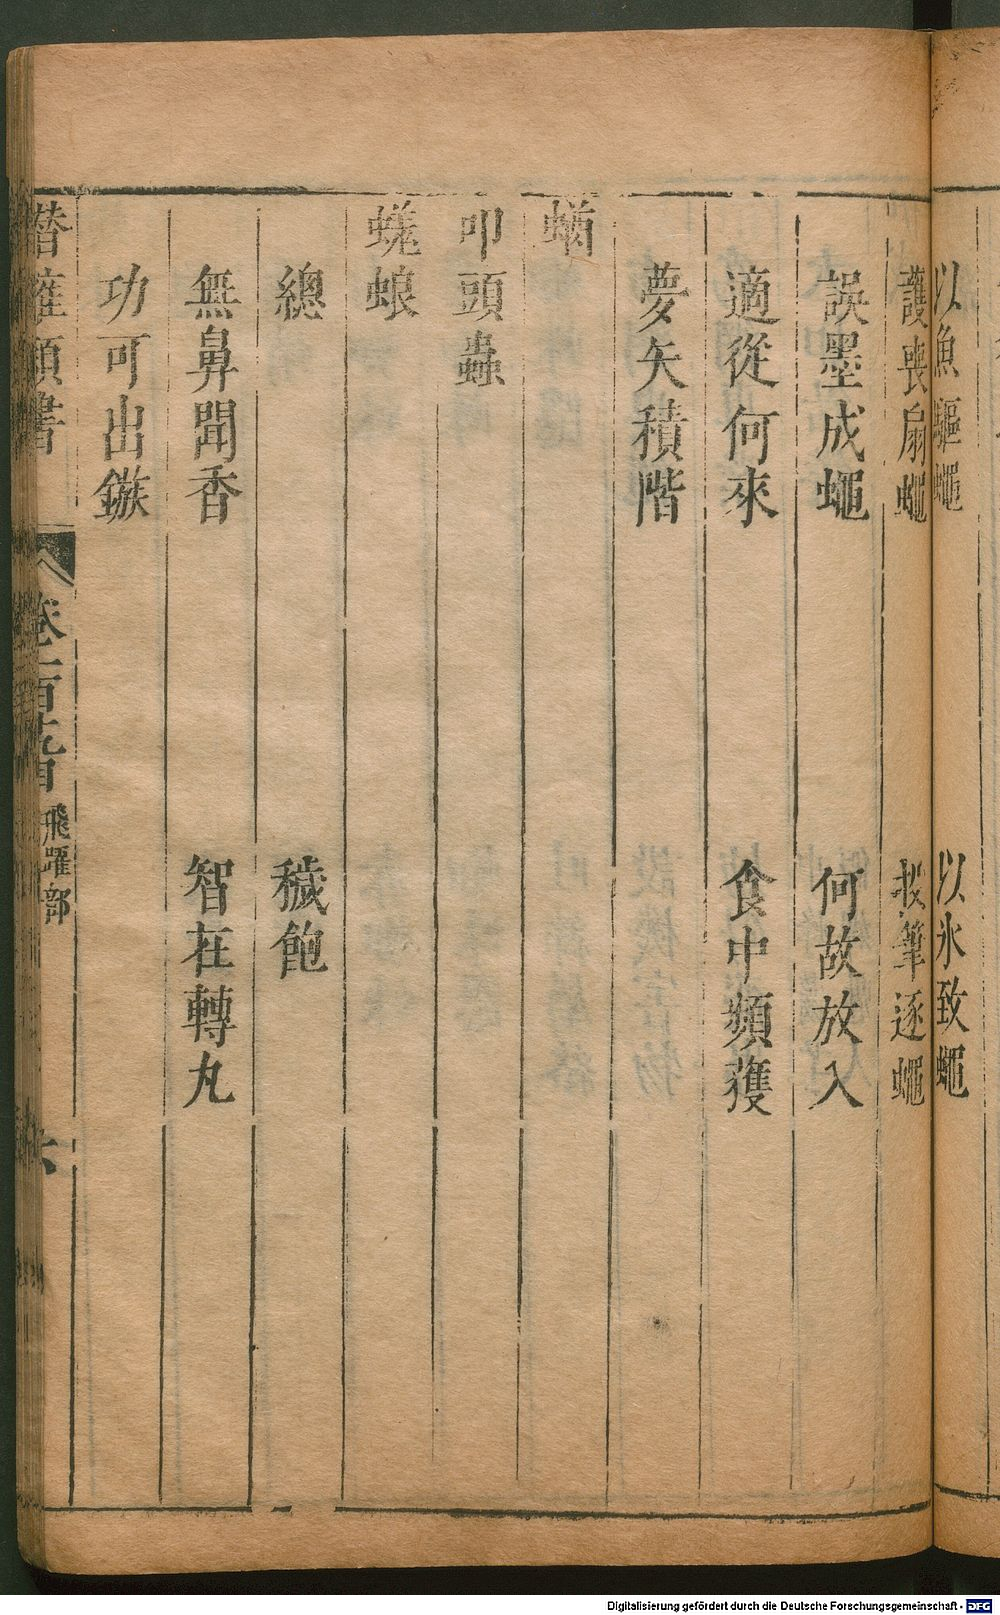 以魚驅蠅　以氷致蠅
護喪扇蠅　拔筆逐蠅
誤墨成蠅　何故放入
適從何來　食中頻獲
夢矢積階
蝤
叩頭蟲
蜣蜋
總　穢飽
無鼻聞香　智在轉丸
功可出鏃
潛確類書　卷一百九　飛躍部　六
Digitalisierung gefördert durch die Deutsche Forschungsgemeinschaft - DFG